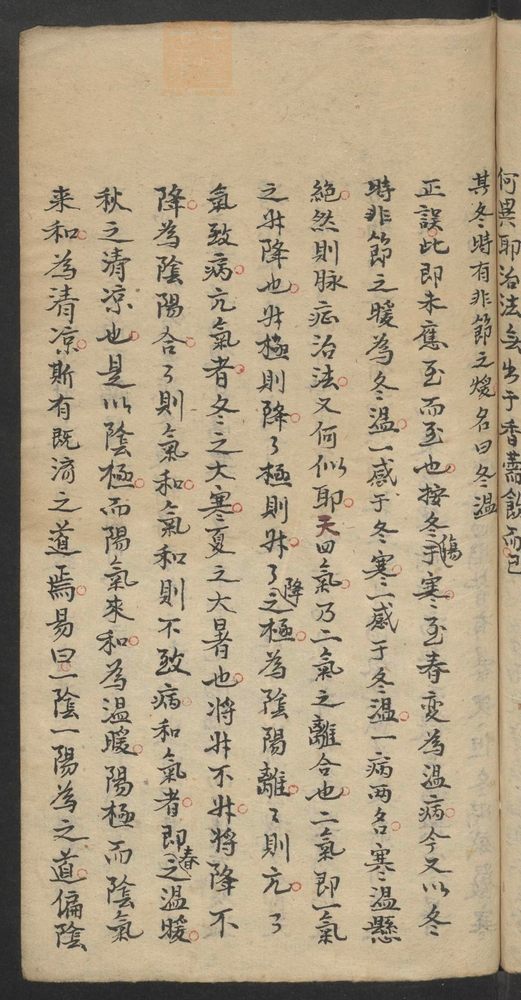 何異耶治法無出于香薷飲而已
其冬時有非節之煖名曰冬温
正誤此即未應至而至也按冬傷于寒至春變為温病今又以冬
時非節之暖為冬温一感于冬寒一感于冬温一病两名寒温懸
絶然則脉症治法又何似耶天四氣乃二氣之離合也二氣即一氣
之升降也升極則降了極則升了降之極為陰陽離離則亢了
氣致病亢氣者冬之大寒夏之大暑也将升不升将降不
降為陰陽合了則氣和氣和則不致病和氣者即春之温暖
秋之清凉也是以陰極而陽氣來和為温暖陽極而陰氣
來和為清凉斯有既濟之道焉易曰一陰一陽為之道偏陰